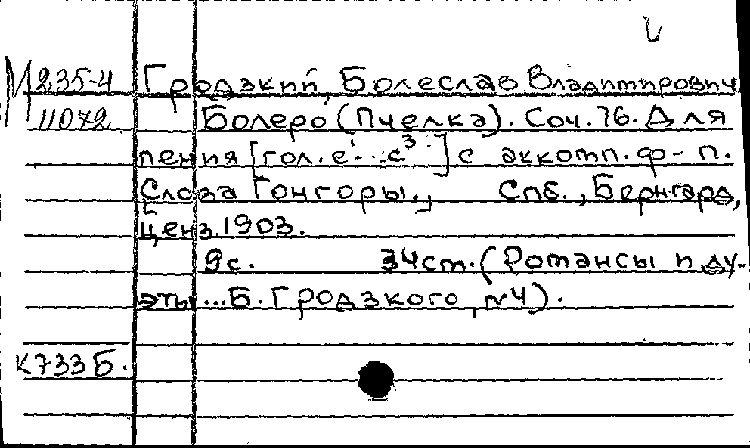 М 235-4 Гродзкий, Болеслав Владимирович
11072 Болеро (Пчелка). Соч. 76. Для
пения [гол. е'...с³] с аккомп. ф-п.
Слова Гонгоры., Спб., Бернгард,
ценз. 1903.
9с. 34см. (Романсы и ду-
эты ... Б. Гродзкого, №4).
К733Б.